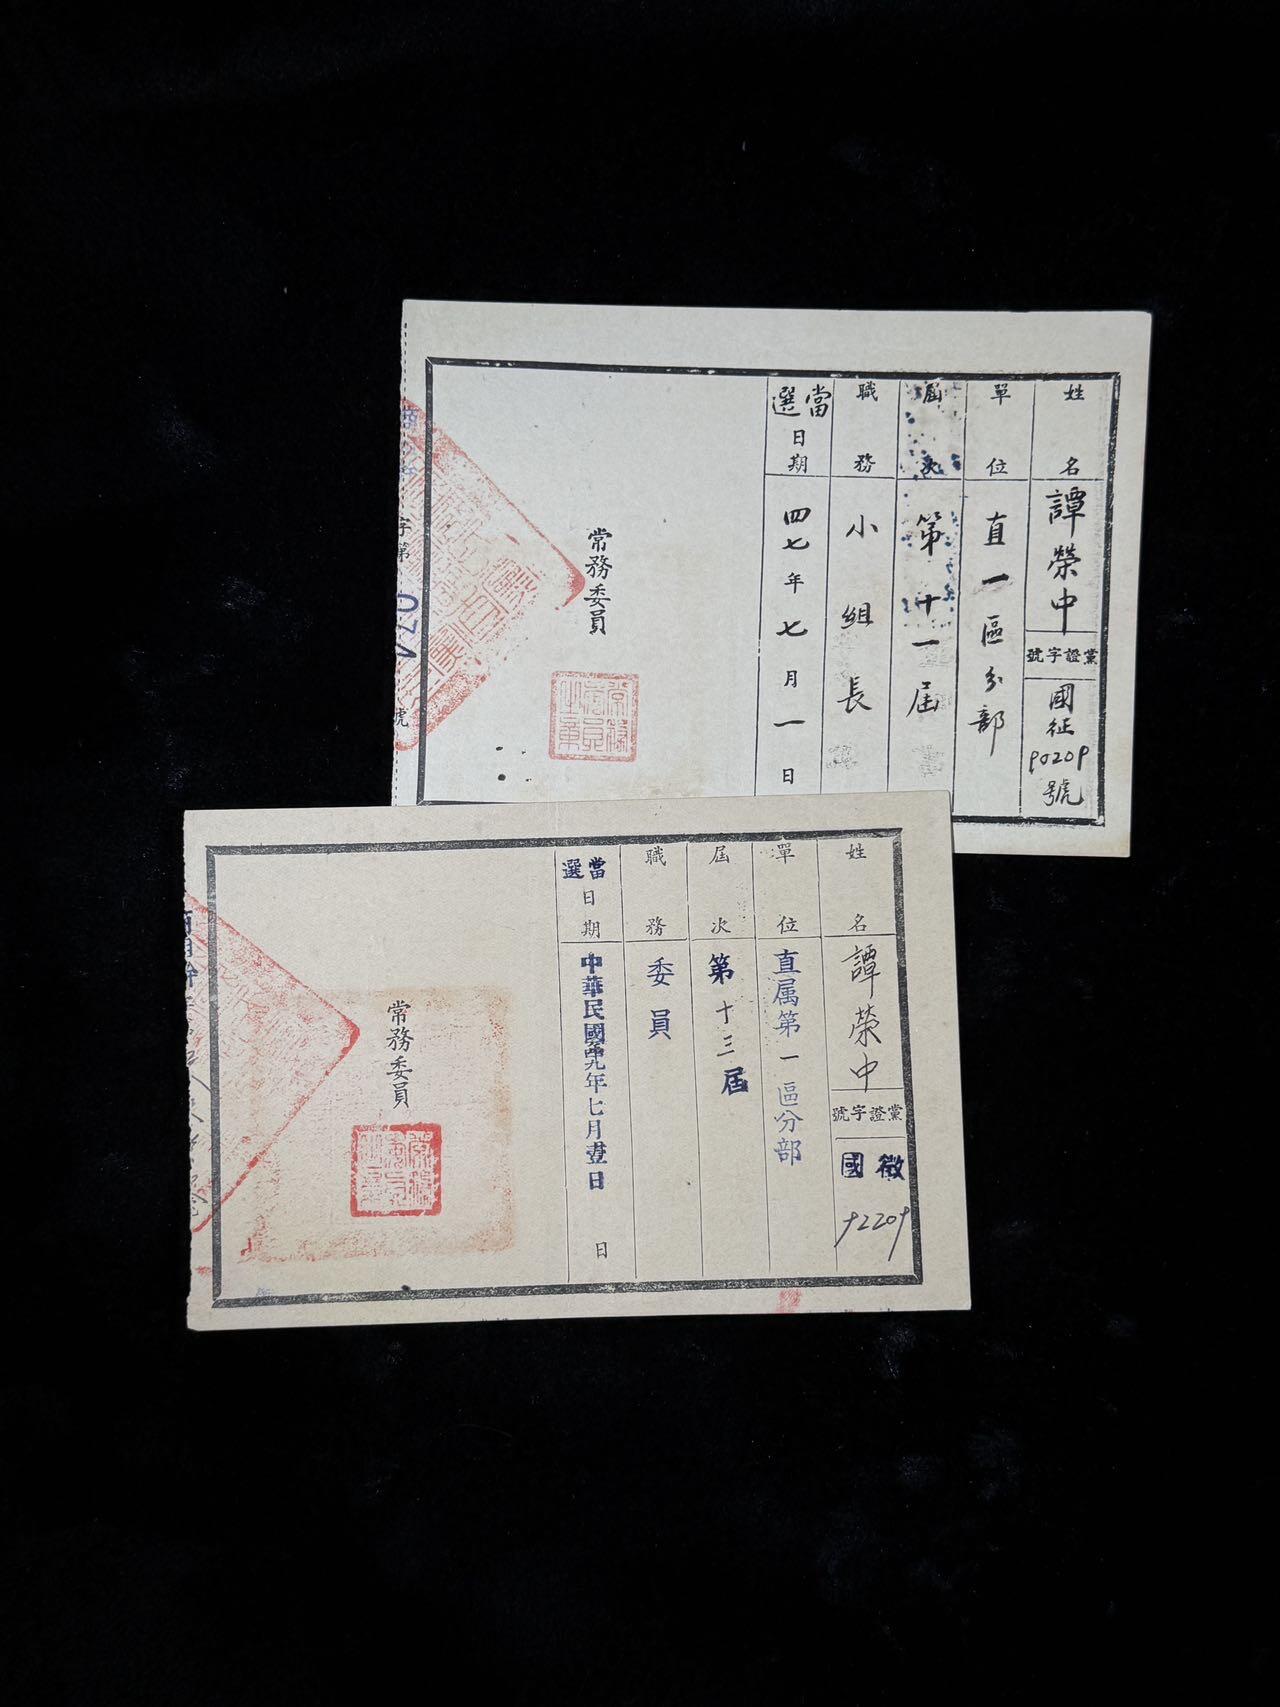 姓名 譚榮中
黨證字號 國征90209號
單位 直一區分部
屆次 第十一屆
職務 小組長
當選日期 四七年七月一日
常務委員
字第
號
姓名 譚榮中
黨證字號 國徵 92209
單位 直属第一區分部
屆次 第十三届
職務 委員
當選日期 中華民國 九年七月壹日
日
常務委員